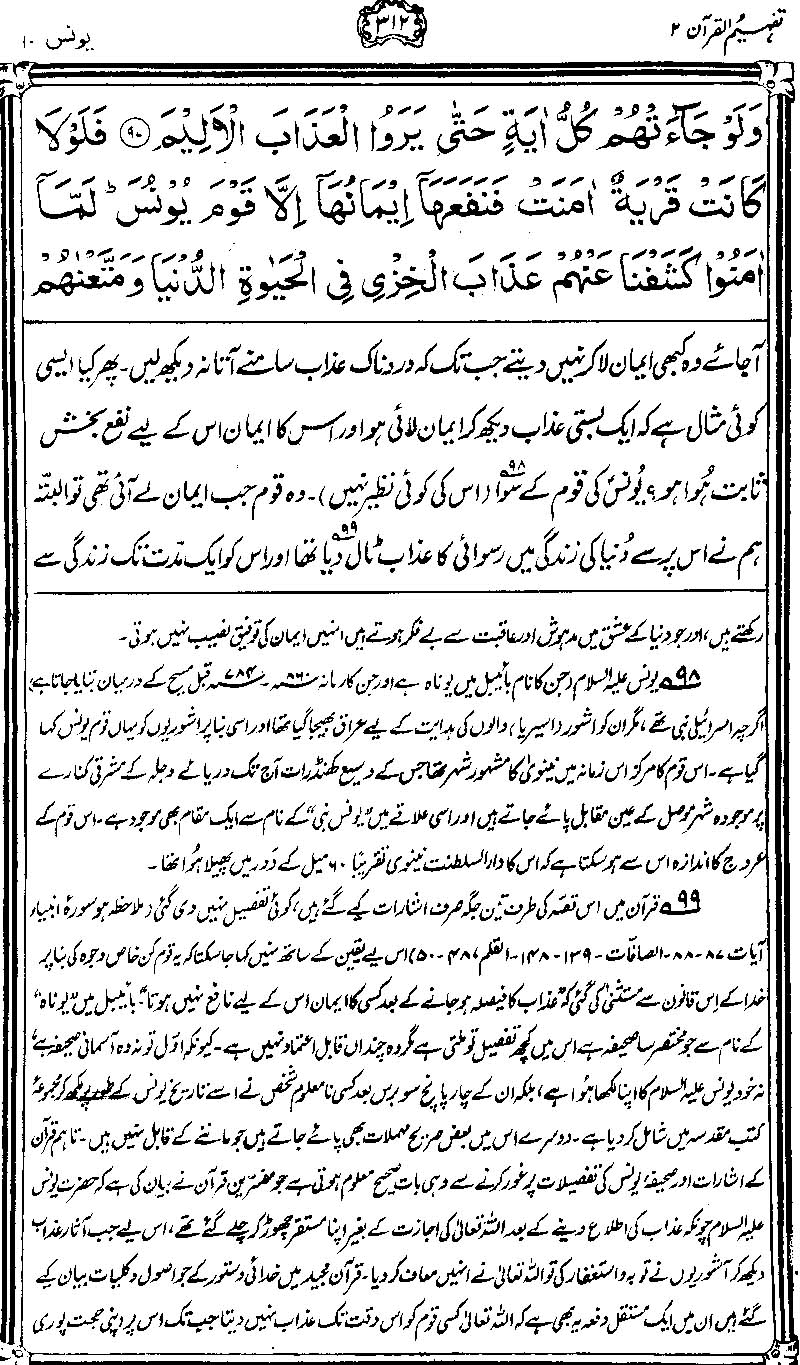 تفہیم القرآن ۲
۳۱۲
یونس ۱۰
وَلَوْ جَآءَتْهُمْ كُلُّ اٰيَةٍ حَتّٰى يَرَوُا الْعَذَابَ الْاَلِيْمَ ﴿۹۷﴾ فَلَوْلَا
كَانَتْ قَرْيَةٌ اٰمَنَتْ فَنَفَعَهَاۤ اِيْمَانُهَاۤ اِلَّا قَوْمَ يُوْنُسَ ؕ لَمَّاۤ
اٰمَنُوْا كَشَفْنَا عَنْهُمْ عَذَابَ الْخِزْيِ فِى الْحَيٰوةِ الدُّنْيَا وَمَتَّعْنٰهُمْ
آجائے وہ کبھی ایمان لاکر نہیں دیتے جب تک کہ دردناک عذاب سامنے آتا نہ دیکھ لیں۔ پھر کیا ایسی
کوئی مثال ہے کہ ایک بستی عذاب دیکھ کر ایمان لائی ہو اور اس کا ایمان اس کے لیے نفع بخش
ثابت ہُوا ہو؟ یُونسؑ کی قوم کے سوا۹۸ (اس کی کوئی نظیر نہیں)۔ وہ قوم جب ایمان لے آئی تھی تو البتہ
ہم نے اس پر سے دُنیا کی زندگی میں رسوائی کا عذاب ٹال دیا۹۹ تھا اور اس کو ایک مدّت تک زندگی سے
رکھتے ہیں، اور جو دنیا کے عشق میں مدہوش اور عاقبت سے بے فکر ہوتے ہیں انہیں ایمان کی توفیق نصیب نہیں ہوتی۔
۹۸ یونس علیہ السلام (جن کا نام بائیبل میں یوناہ ہے اور جن کا زمانہ ۸۶۰ء - ۷۸۴ء قبل مسیح کے درمیان بتایا جاتا ہے)
اگرچہ اسرائیلی نبی تھے، مگر ان کو اشور (اسیریا) والوں کی ہدایت کے لیے عراق بھیجا گیا تھا اور اسی بنا پر اشوریوں کو یہاں قوم یونس کہا
گیا ہے۔ اس قوم کا مرکز اس زمانہ میں نینویٰ کا مشہور شہر تھا جس کے وسیع کھنڈرات آج تک دریائے دجلہ کے مشرقی کنارے
پر موجودہ شہر موصل کے عین مقابل پائے جاتے ہیں اور اسی علاقے میں ”یونس نبی“ کے نام سے ایک مقام بھی موجود ہے۔ اس قوم کے
عروج کا اندازہ اس سے ہو سکتا ہے کہ اس کا دارالسلطنت نینویٰ تقریباً ۶۰ میل کے دَور میں پھیلا ہُوا تھا۔
۹۹ قرآن میں اس قصہ کی طرف تین جگہ صرف اشارات کیے گئے ہیں، کوئی تفصیل نہیں دی گئی (ملاحظہ ہو سورۂ انبیاء
آیات ۸۷-۸۸-الصافات، ۱۳۹-۱۴۸-القلم ۴۸، -۵۰) اس لیے یقین کے ساتھ نہیں کہا جا سکتا کہ یہ قوم کن خاص وجوہ کی بنا پر
خدا کے اِس قانون سے مستثنیٰ کی گئی کہ ”عذاب کا فیصلہ ہو جانے کے بعد کسی کا ایمان اس کے لیے نافع نہیں ہوتا“ بائیبل میں ”یوناہ“
کے نام سے جو مختصر سا صحیفہ ہے اس میں کچھ تفصیل تو ملتی ہے مگر وہ چنداں قابل اعتماد نہیں ہے۔ کیونکہ اوّل تو نہ وہ آسمانی صحیفہ ہے،
نہ خود یونس علیہ السلام کا اپنا لکھا ہُوا ہے، بلکہ ان کے چار پانچ سو برس بعد کسی نامعلوم شخص نے اسے تاریخ یونس کے طور پر لکھ کر مجموعۂ
کتب مقدسہ میں شامل کر دیا ہے۔ دوسرے اس میں بعض صریح مہملات بھی پائے جاتے ہیں جو ماننے کے قابل نہیں ہیں۔ تاہم قرآن
کے اشارات اور صحیفۂ یونس کی تفصیلات پر غور کرنے سے وہی بات صحیح معلوم ہوتی ہے جو مفسّرینِ قرآن نے بیان کی ہے کہ حضرت یونس
علیہ السلام چونکہ عذاب کی اطلاع دینے کے بعد اللہ تعالیٰ کی اجازت کے بغیر اپنا مستقر چھوڑ کر چلے گئے تھے، اس لیے جب آثارِ عذاب
دیکھ کر آشوریوں نے توبہ و استغفار کی تو اللہ تعالیٰ نے انہیں معاف کر دیا۔ قرآن مجید میں خدائی دستور کے جو اصول و کلیات بیان کیے
گئے ہیں ان میں ایک مستقل دفعہ یہ بھی ہے کہ اللہ تعالیٰ کسی قوم کو اس وقت تک عذاب نہیں دیتا جب تک اس پر اپنی حجت پوری